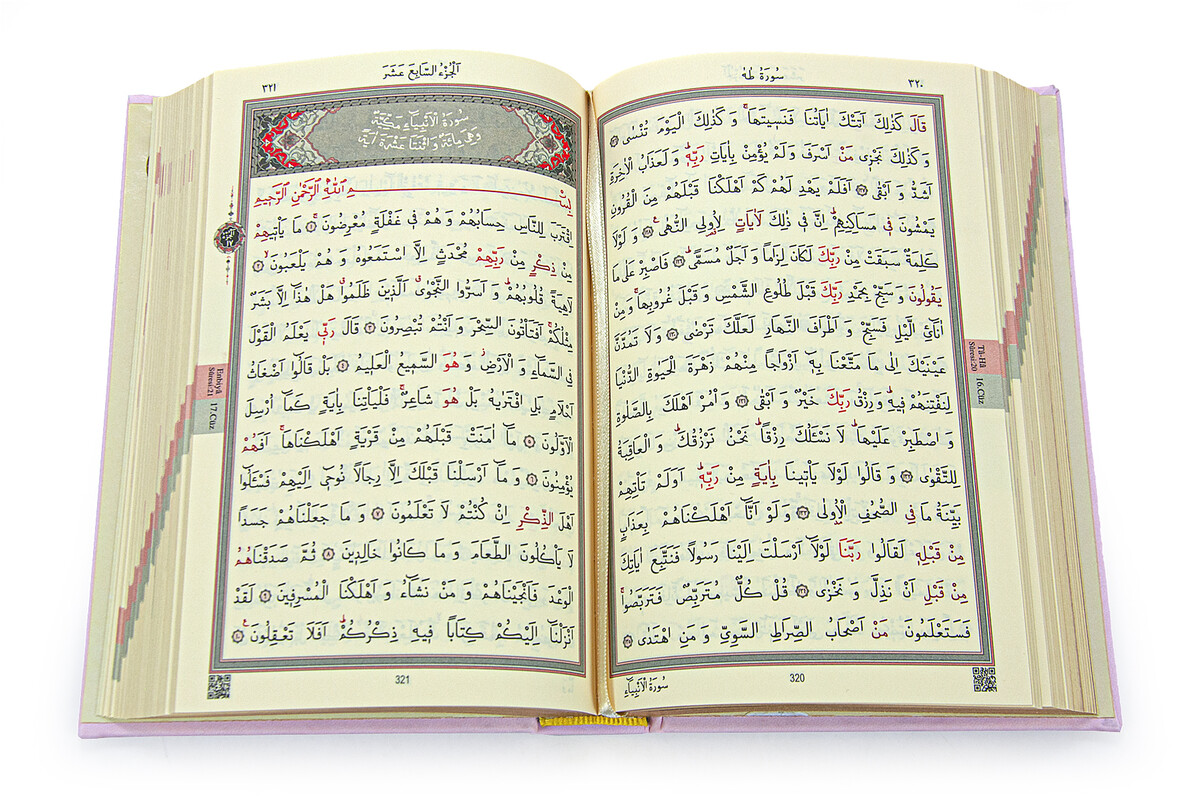 سورة طه
٣٢٠
قَالَ كَذٰلِكَ اَتَتْكَ اٰيَاتُنَا فَنَسٖيتَهَاۚ وَكَذٰلِكَ الْيَوْمَ تُنْسٰى
وَكَذٰلِكَ نَجْزٖى مَنْ اَسْرَفَ وَلَمْ يُؤْمِنْ بِاٰيَاتِ رَبِّهٖؕ وَلَعَذَابُ الْاٰخِرَةِ
اَشَدُّ وَاَبْقٰى اَفَلَمْ يَهْدِ لَهُمْ كَمْ اَهْلَكْنَا قَبْلَهُمْ مِنَ الْقُرُونِ
يَمْشُونَ فٖى مَسَاكِنِهِمْؕ اِنَّ فٖى ذٰلِكَ لَاٰيَاتٍ لِاُولِى النُّهٰىۚ وَلَوْلَا
كَلِمَةٌ سَبَقَتْ مِنْ رَبِّكَ لَكَانَ لِزَاماً وَاَجَلٌ مُسَمًّىؕ فَاصْبِرْ عَلٰى مَا
يَقُولُونَ وَسَبِّحْ بِحَمْدِ رَبِّكَ قَبْلَ طُلُوعِ الشَّمْسِ وَقَبْلَ غُرُوبِهَاۚ وَمِنْ
اٰنَائِ الَّيْلِ فَسَبِّحْ وَاَطْرَافَ النَّهَارِ لَعَلَّكَ تَرْضٰى وَلَا تَمُدَّنَّ
عَيْنَيْكَ اِلٰى مَا مَتَّعْنَا بِهٖٓ اَزْوَاجاً مِنْهُمْ زَهْرَةَ الْحَيٰوةِ الدُّنْيَا
لِنَفْتِنَهُمْ فٖيهِؕ وَرِزْقُ رَبِّكَ خَيْرٌ وَاَبْقٰى وَأْمُرْ اَهْلَكَ بِالصَّلٰوةِ
وَاصْطَبِرْ عَلَيْهَاؕ لَا نَسْـَٔلُكَ رِزْقاًؕ نَحْنُ نَرْزُقُكَؕ وَالْعَاقِبَةُ
لِلتَّقْوٰى وَقَالُوا لَوْلَا يَأْتٖينَا بِاٰيَةٍ مِنْ رَبِّهٖؕ اَوَلَمْ تَأْتِهِمْ
بَيِّنَةُ مَا فِى الصُّحُفِ الْاُولٰى وَلَوْ اَنَّٓا اَهْلَكْنَاهُمْ بِعَذَابٍ
مِنْ قَبْلِهٖ لَقَالُوا رَبَّنَا لَوْلَٓا اَرْسَلْتَ اِلَيْنَا رَسُولاً فَنَتَّبِعَ اٰيَاتِكَ
مِنْ قَبْلِ اَنْ نَذِلَّ وَنَخْزٰى قُلْ كُلٌّ مُتَرَبِّصٌ فَتَرَبَّصُواۚ
فَسَتَعْلَمُونَ مَنْ اَصْحَابُ الصِّرَاطِ السَّوِىِّ وَمَنِ اهْتَدٰى
Tâ-Hâ
Sûresi:20 16.Cüz
320
سورة الأنبياء
الجزء السابع عشر
٣٢١
سورة الأنبياء مكية
وهي مائة واثنتا عشرة آية
بِسْمِ اللّٰهِ الرَّحْمٰنِ الرَّحٖيمِ
اِقْتَرَبَ لِلنَّاسِ حِسَابُهُمْ وَهُمْ فٖى غَفْلَةٍ مُعْرِضُونَۚ مَا يَأْتٖيهِمْ
مِنْ ذِكْرٍ مِنْ رَبِّهِمْ مُحْدَثٍ اِلَّا اسْتَمَعُوهُ وَهُمْ يَلْعَبُونَۙ
لَاهِيَةً قُلُوبُهُمْؕ وَاَسَرُّوا النَّجْوَىۗ الَّذٖينَ ظَلَمُواۗ هَلْ هٰذَٓا اِلَّا بَشَرٌ
مِثْلُكُمْۚ اَفَتَأْتُونَ السِّحْرَ وَاَنْتُمْ تُبْصِرُونَ قَالَ رَبّٖى يَعْلَمُ الْقَوْلَ
فِى السَّمَٓاءِ وَالْاَرْضِؗ وَهُوَ السَّمٖيعُ الْعَلٖيمُ بَلْ قَالُٓوا اَضْغَاثُ
اَحْلَامٍ بَلِ افْتَرٰيهُ بَلْ هُوَ شَاعِرٌۚ فَلْيَأْتِنَا بِاٰيَةٍ كَمَٓا اُرْسِلَ
الْاَوَّلُونَ مَٓا اٰمَنَتْ قَبْلَهُمْ مِنْ قَرْيَةٍ اَهْلَكْنَاهَاۚ اَفَهُمْ
يُؤْمِنُونَ وَمَٓا اَرْسَلْنَا قَبْلَكَ اِلَّا رِجَالاً نُوحٖٓى اِلَيْهِمْ فَسْـَٔلُٓوا
اَهْلَ الذِّكْرِ اِنْ كُنْتُمْ لَا تَعْلَمُونَ وَمَا جَعَلْنَاهُمْ جَسَداً
لَا يَأْكُلُونَ الطَّعَامَ وَمَا كَانُوا خَالِدٖينَ ثُمَّ صَدَقْنَاهُمُ
الْوَعْدَ فَاَنْجَيْنَاهُمْ وَمَنْ نَشَٓاءُ وَاَهْلَكْنَا الْمُسْرِفٖينَ لَقَدْ
اَنْزَلْنَٓا اِلَيْكُمْ كِتَاباً فٖيهِ ذِكْرُكُمْؕ اَفَلَا تَعْقِلُونَۚ
Enbiyâ
Sûresi:21 17.Cüz
321